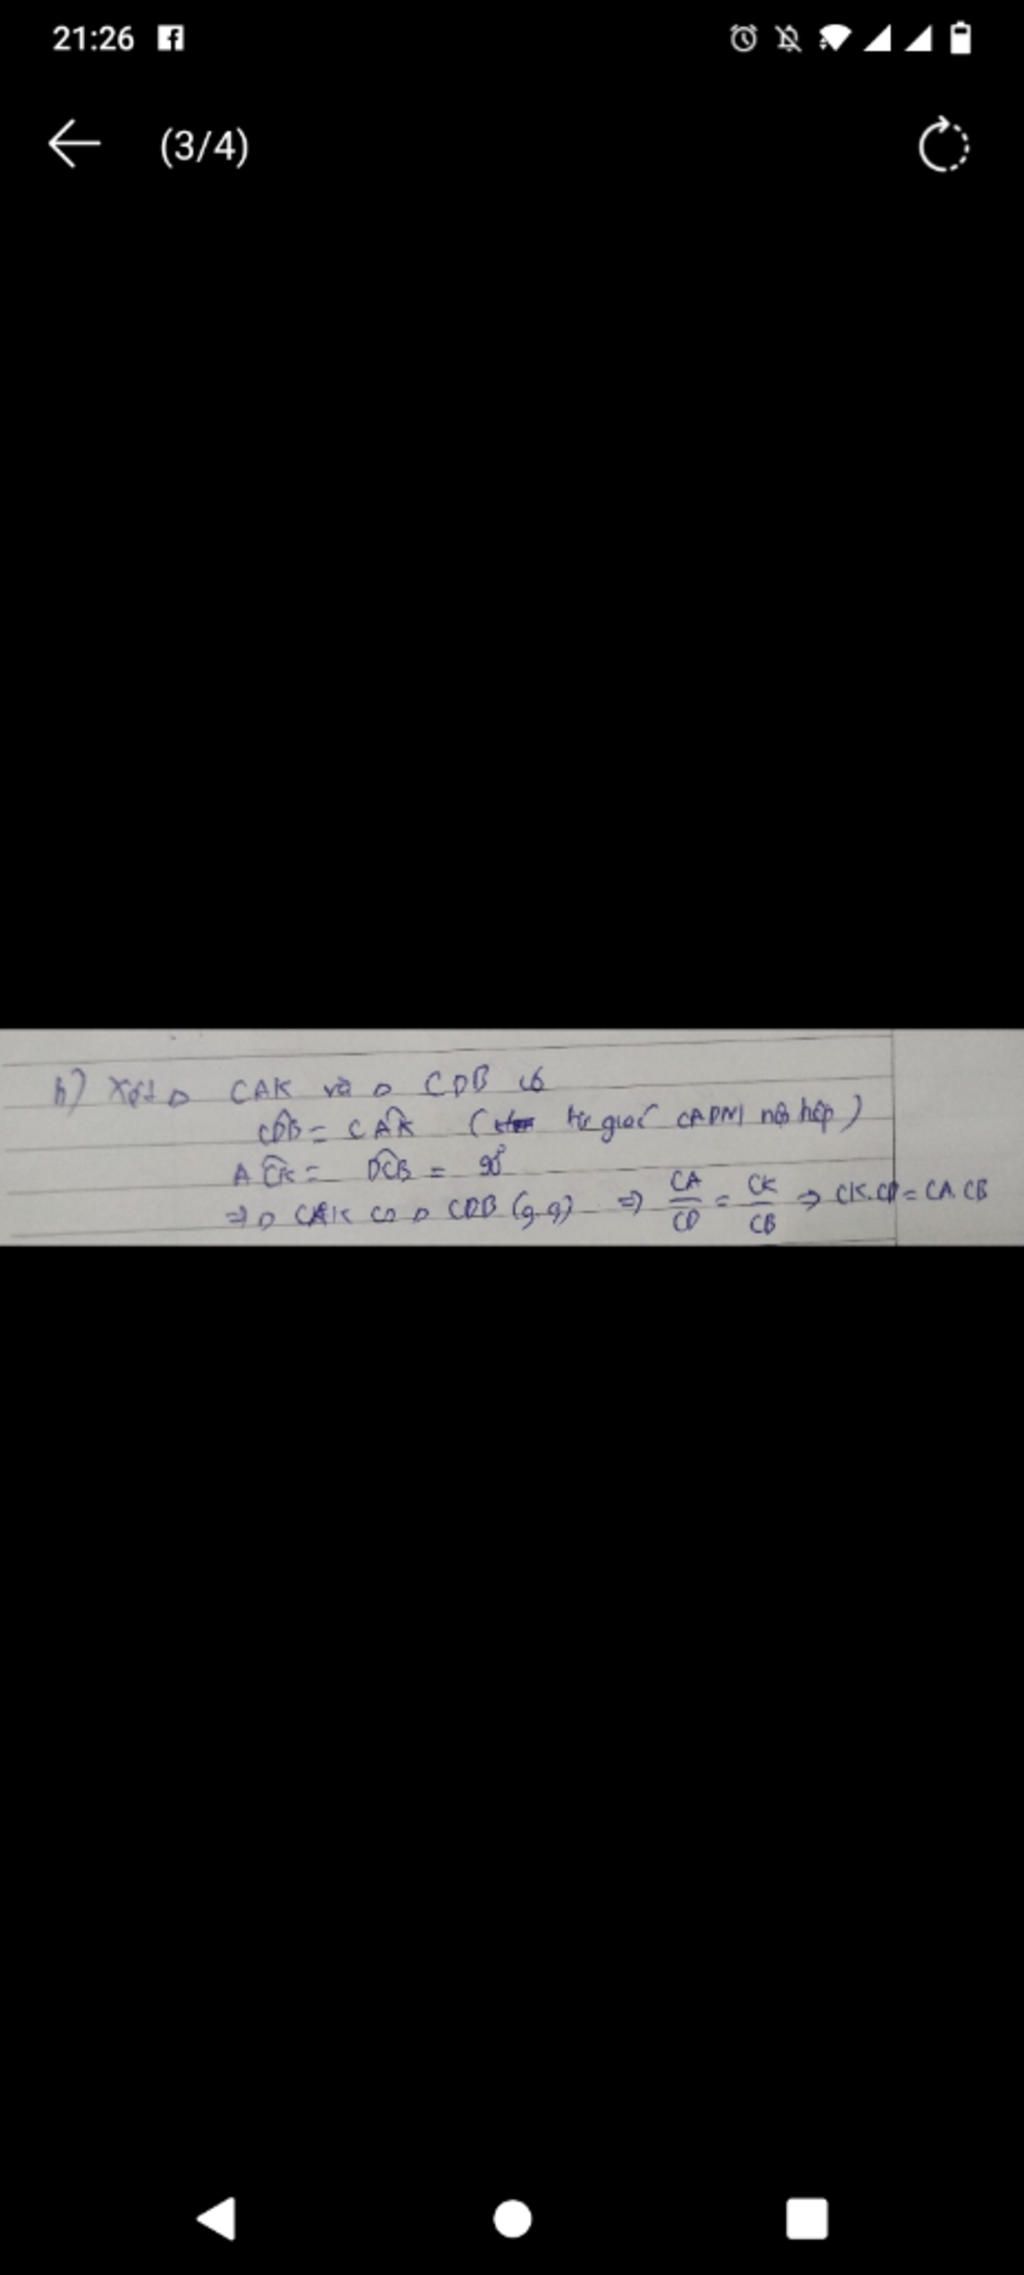 21:26
(3/4)
b) Xét Δ CAK và Δ CDB có
CDB = CAK ( tứ giác CADM nội tiếp )
ACK = DCB = 90°
⇒ Δ CAK ∽ Δ CDB (g.g) ⇒ CA/CD = CK/CB ⇒ CK.CD = CA.CB